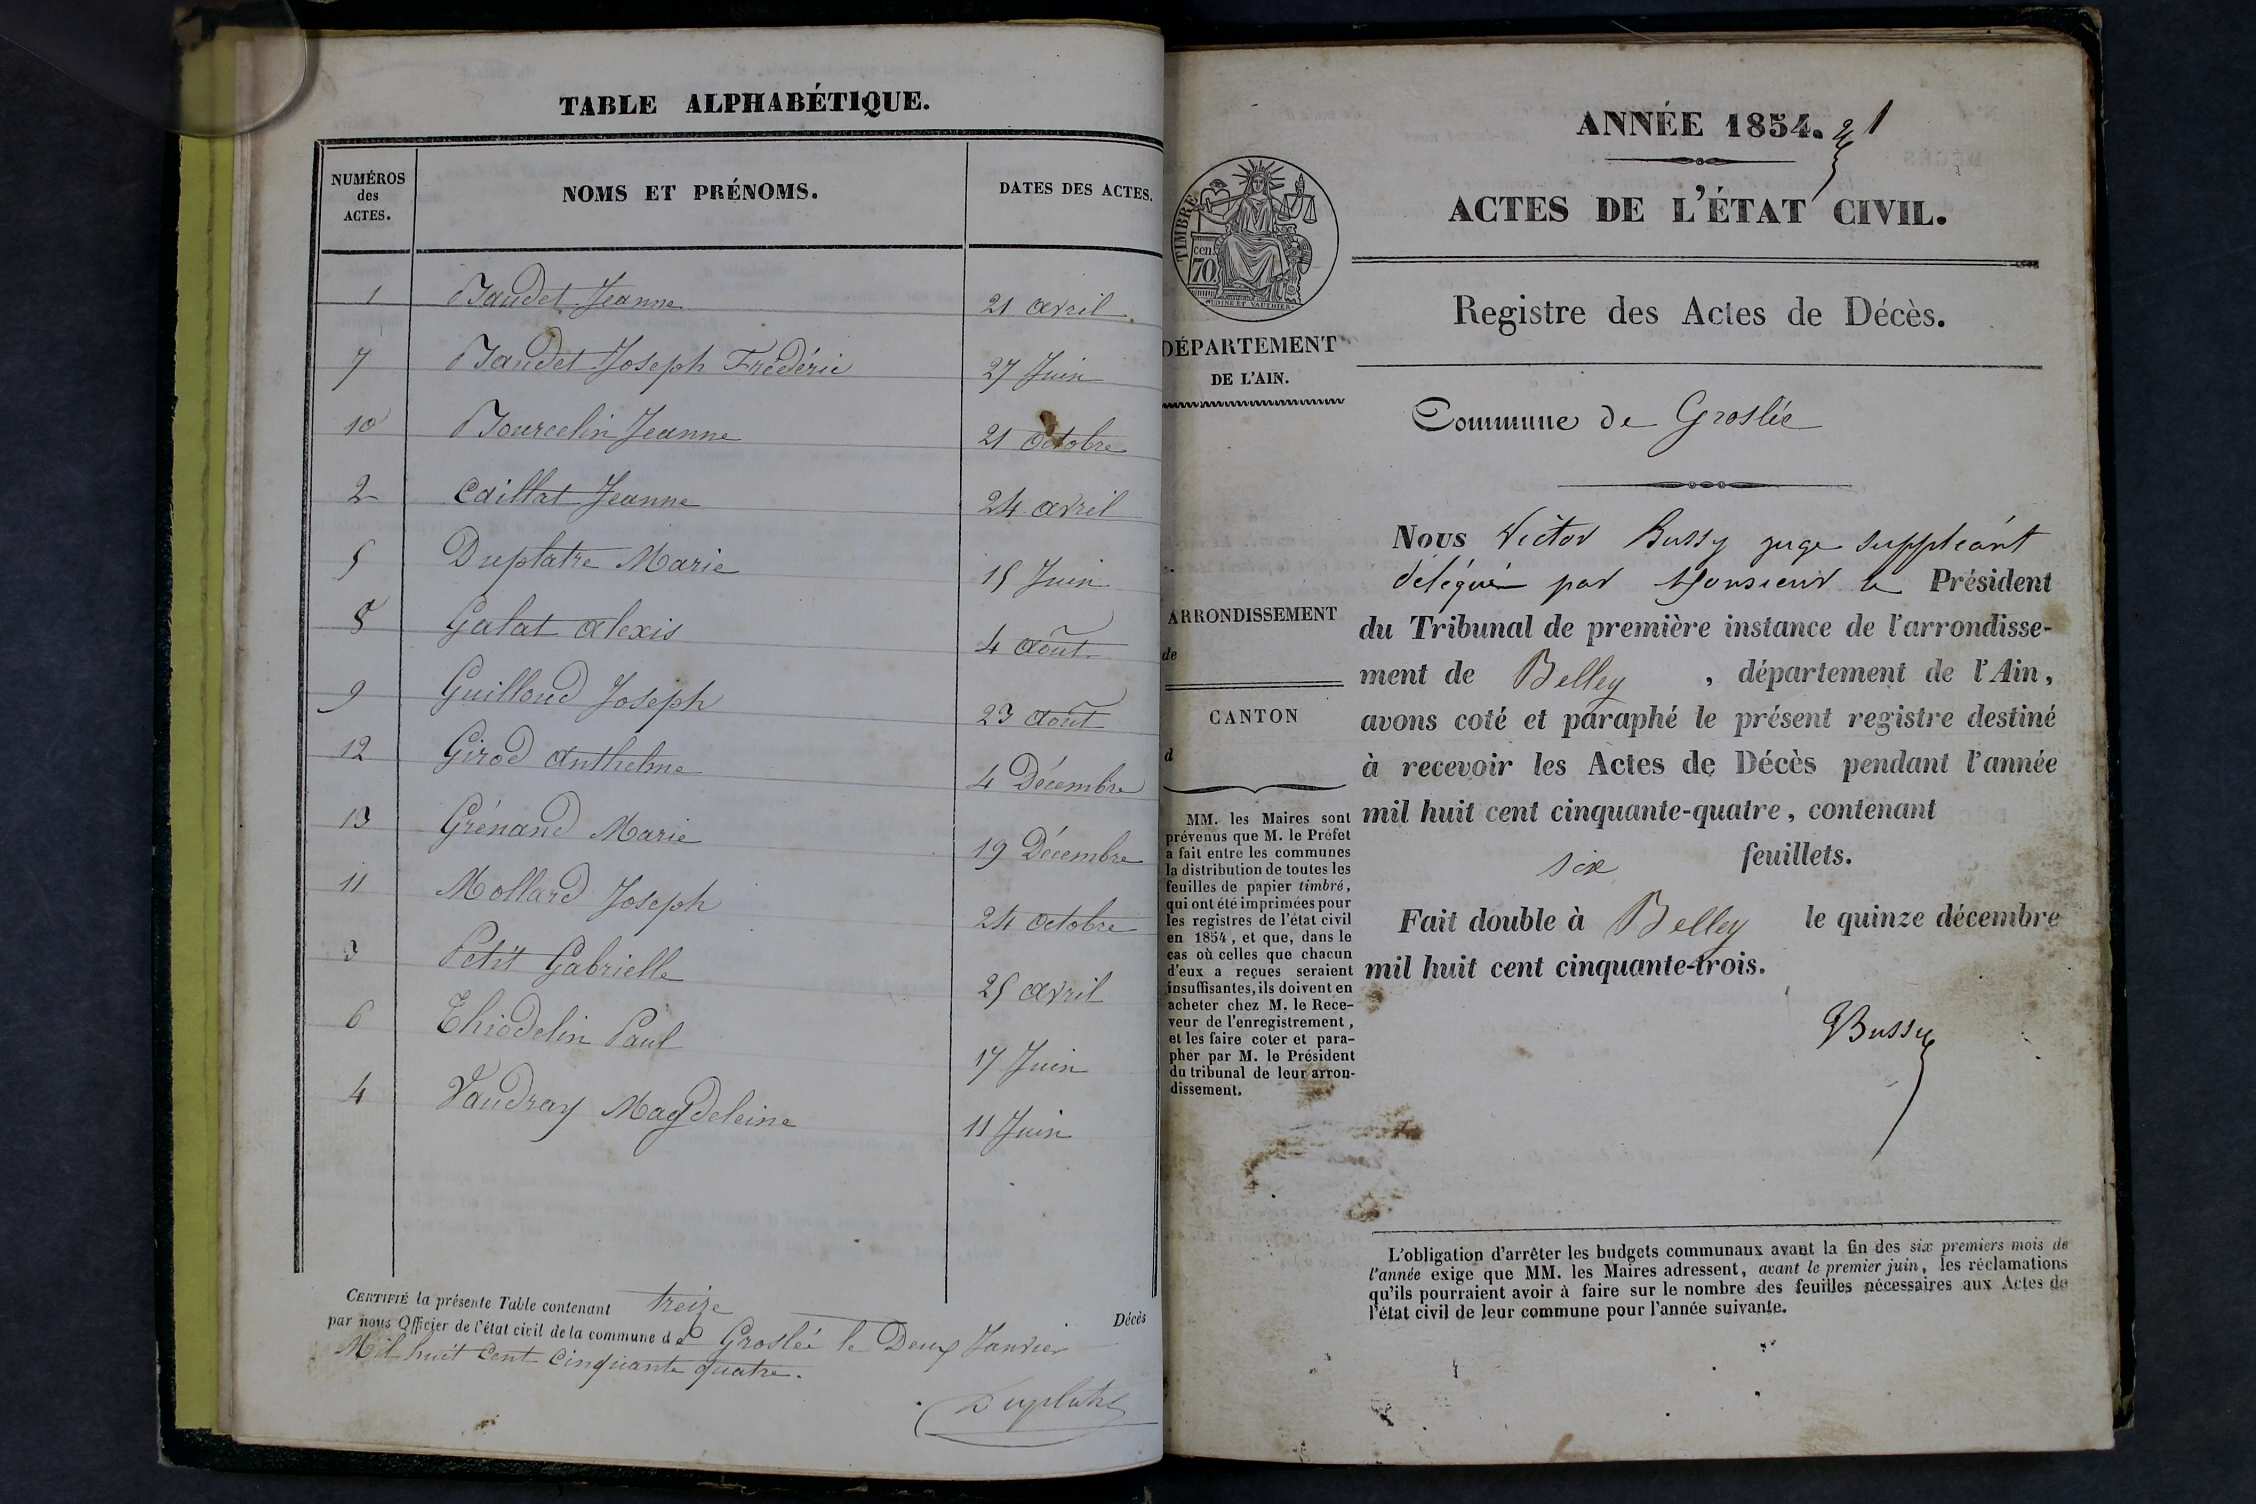 TABLE ALPHABÉTIQUE.
NUMÉROS
des
ACTES.
NOMS ET PRÉNOMS.
DATES DES ACTES.
1 Baudet Jeanne 21 avril
7 Baudet Joseph Frédéric 27 Juin
10 Bourcelin Jeanne 21 octobre
2 Caillat Jeanne 24 avril
5 Duplatre Marie 15 Juin
8 Galat alexis 4 août
9 Guilloud Joseph 23 août
12 Girod anthelme 4 Décembre
13 Grénand Marie 19 Décembre
11 Mollard Joseph 24 octobre
3 Petit Gabrielle 25 avril
6 Thiodelin Paul 17 Juin
4 Vaudray Magdeleine 11 Juin
CERTIFIÉ la présente Table contenant treize Décès
par nous Officier de l'état civil de la commune de Groslée le Deux Janvier
Mil huit cent cinquante quatre.
Duplatre
ANNÉE 1854. 1
ACTES DE L'ÉTAT CIVIL.
Registre des Actes de Décès.
TIMBRE
70 cen.
DÉPARTEMENT
DE L'AIN.
Commune de Groslée
ARRONDISSEMENT
de
CANTON
d
MM. les Maires sont
prévenus que M. le Préfet
a fait entre les communes
la distribution de toutes les
feuilles de papier timbré,
qui ont été imprimées pour
les registres de l'état civil
en 1854, et que, dans le
cas où celles que chacun
d'eux a reçues seraient
insuffisantes, ils doivent en
acheter chez M. le Rece-
veur de l'enregistrement,
et les faire coter et para-
pher par M. le Président
du tribunal de leur arron-
dissement.
Nous Victor Bussy juge suppléant
délégué par Monsieur le Président
du Tribunal de première instance de l'arrondisse-
ment de Belley, département de l'Ain,
avons coté et paraphé le présent registre destiné
à recevoir les Actes de Décès pendant l'année
mil huit cent cinquante-quatre, contenant
six feuillets.
Fait double à Belley le quinze décembre
mil huit cent cinquante-trois.
VBussy
L'obligation d'arrêter les budgets communaux avant la fin des six premiers mois de
l'année exige que MM. les Maires adressent, avant le premier juin, les réclamations
qu'ils pourraient avoir à faire sur le nombre des feuilles nécessaires aux Actes de
l'état civil de leur commune pour l'année suivante.